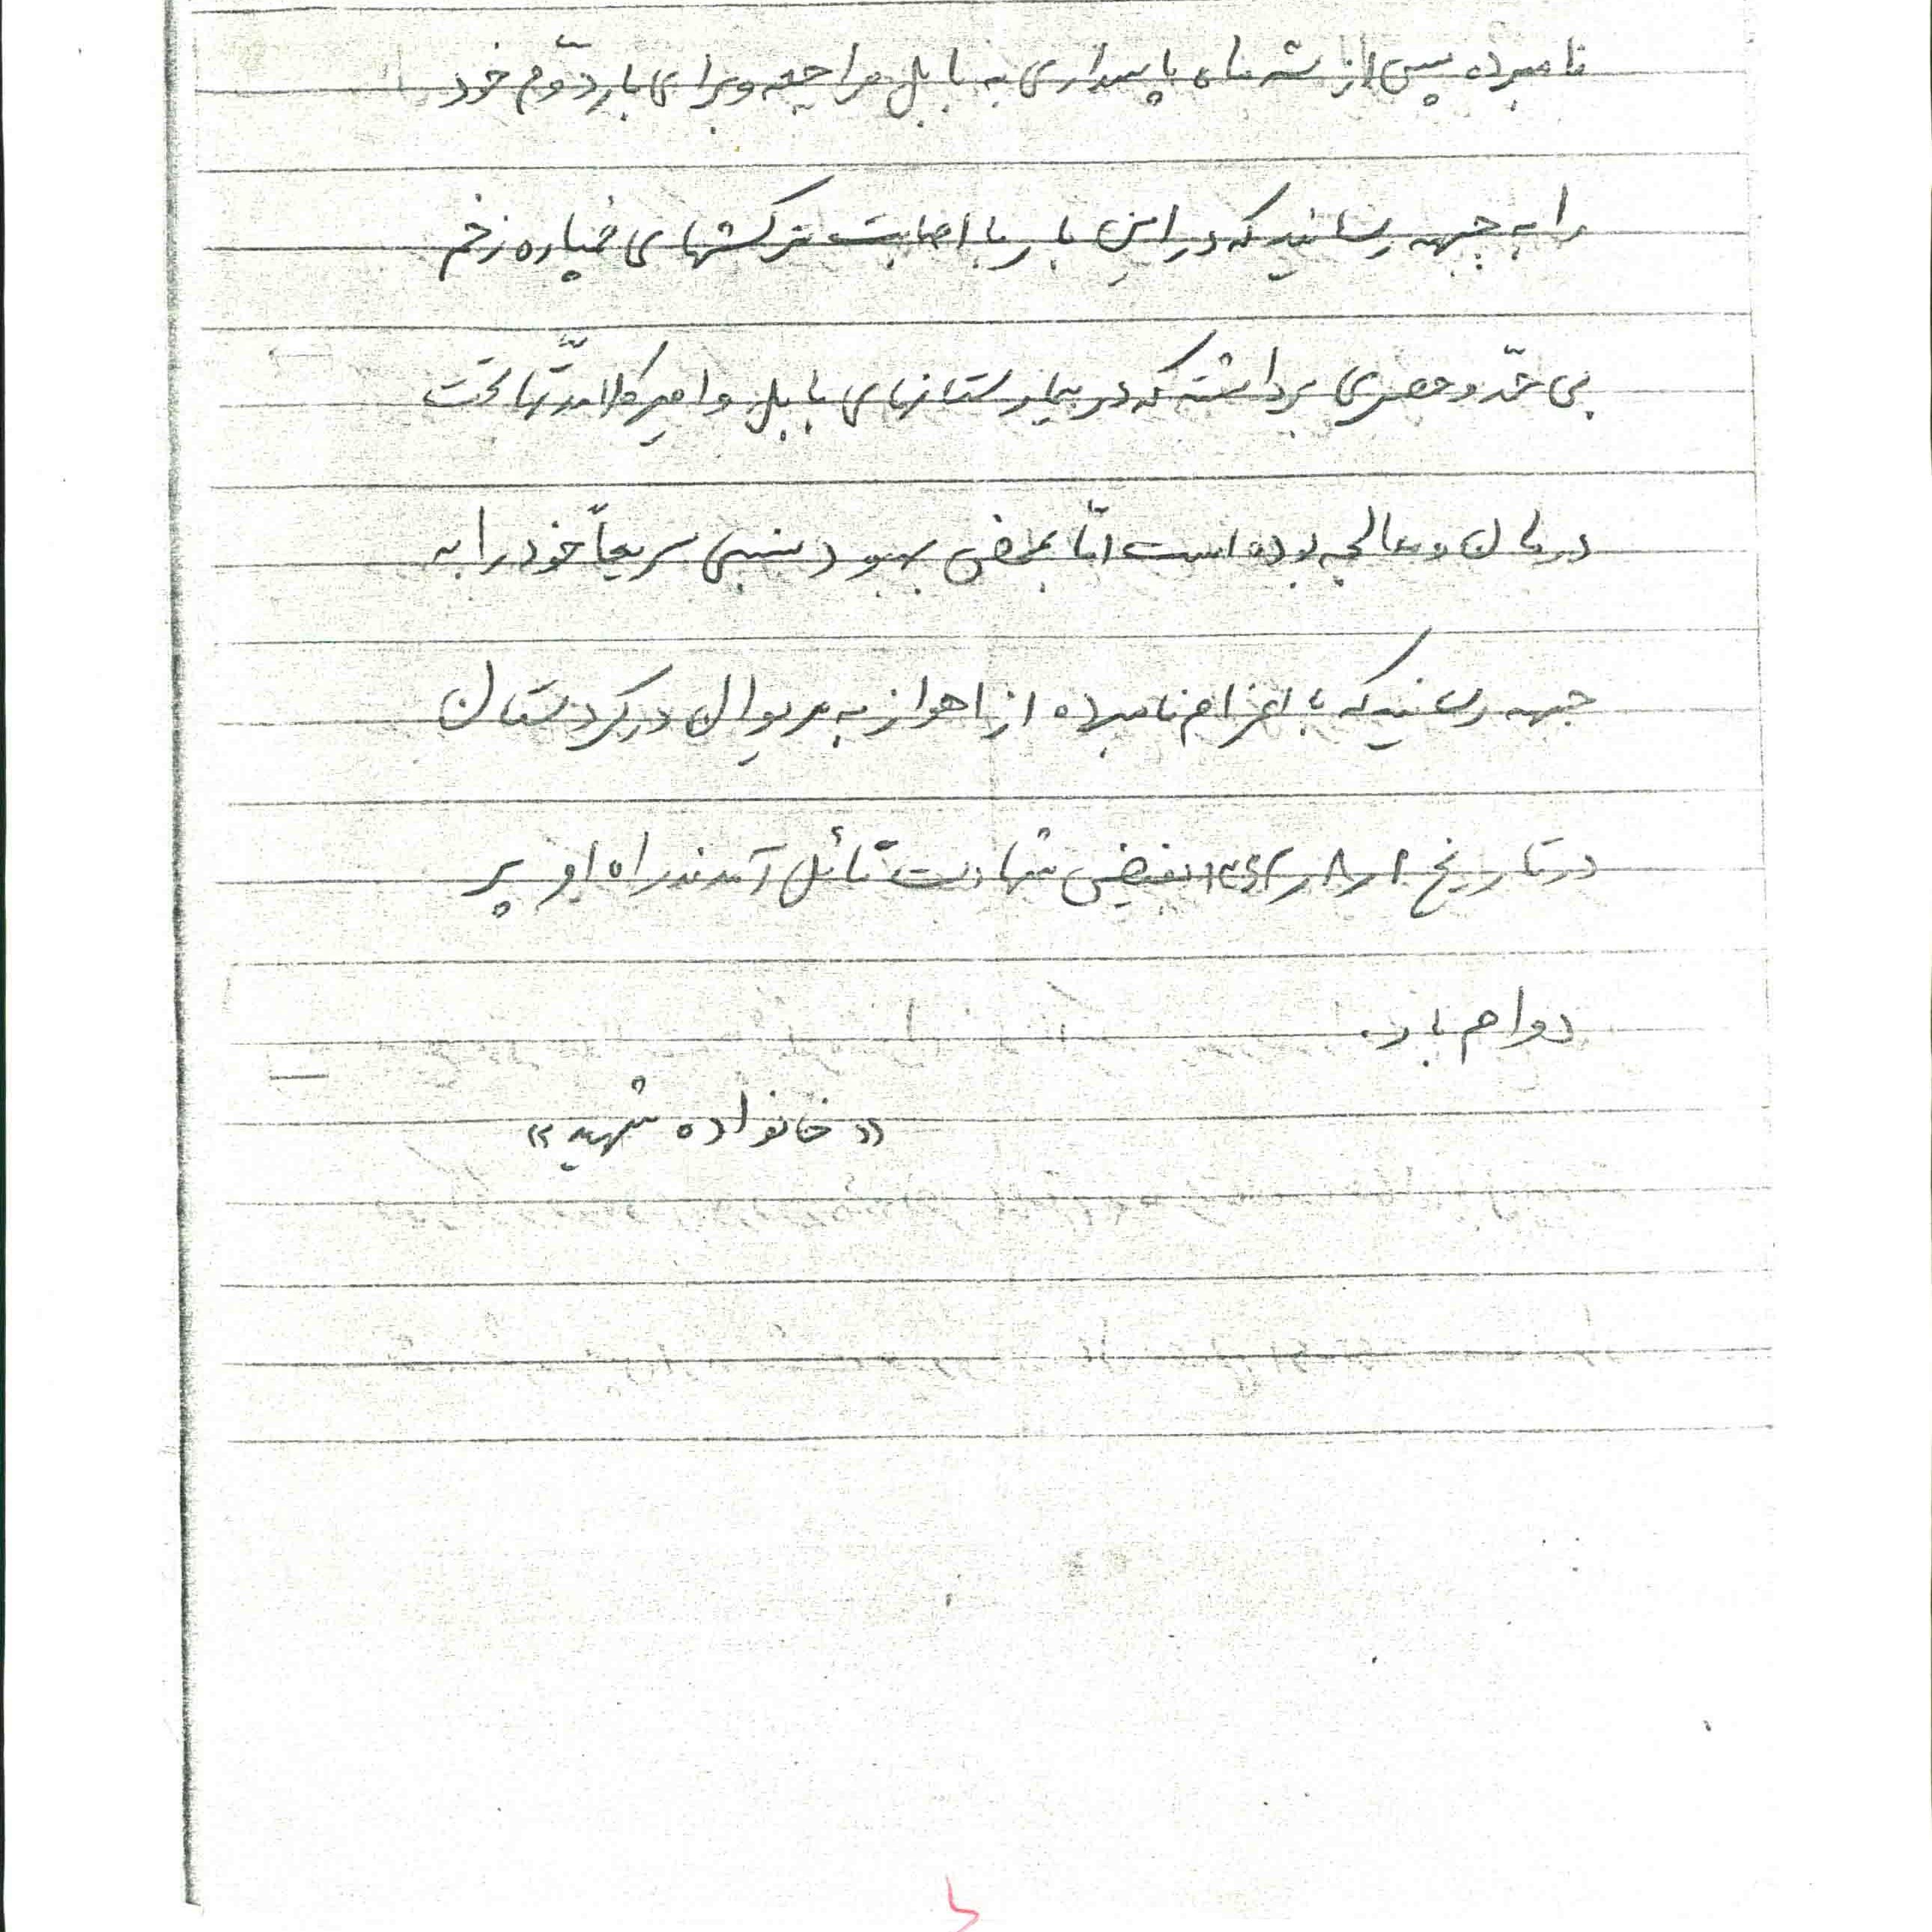 نامبرده پس از شش ماه پاسداری به بابل مراجعه و برای بار دوّم خود
را به جبهه رسانید که در این بار با اصابت ترکشهای خمپاره زخم
بی حدّ و حصری برداشته که در بیمارستانهای بابل و امیرکلا مدّتها تحت
درمان و معالجه بوده است امّا بمحض بهبود نسبی سریعاً خود را به
جبهه رسانید که با اعزام نامبرده از اهواز به مریوان در کردستان
در تاریخ ۱۳۶۲/۸/ بفیض شهادت نائل آمدند راه او پر
دوام باد.
«خانواده شهید»